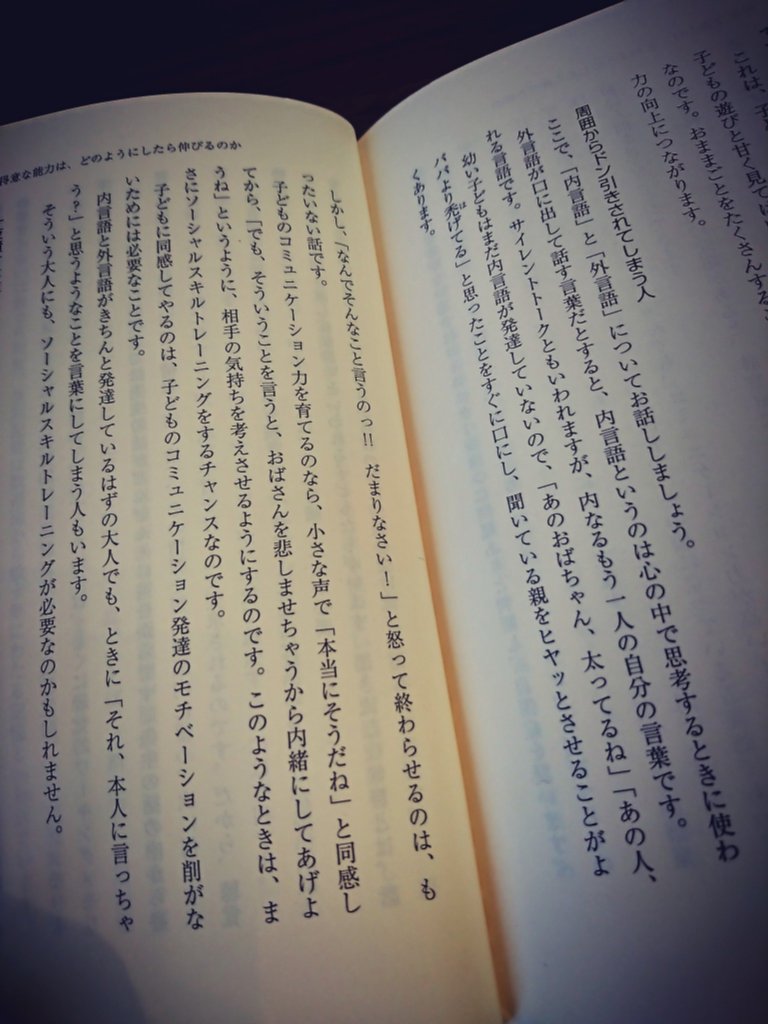 これは、子ど
子どもの遊びと甘く見てい
なのです。おままごとをたくさんするこ
力の向上につながります。
周囲からドン引きされてしまう人
ここで、「内言語」と「外言語」についてお話ししましょう。
外言語が口に出して話す言葉だとすると、内言語というのは心の中で思考するときに使わ
れる言語です。サイレントトークともいわれますが、内なるもう一人の自分の言葉です。
幼い子どもはまだ内言語が発達していないので、「あのおばちゃん、太ってるね」「あの人、
パパより禿げてる」と思ったことをすぐに口にし、聞いている親をヒヤッとさせることがよ
くあります。
しかし、「なんでそんなこと言うのっ!! だまりなさい！」と怒って終わらせるのは、も
ったいない話です。
子どものコミュニケーション力を育てるのなら、小さな声で「本当にそうだね」と同感し
てから、「でも、そういうことを言うと、おばさんを悲しませちゃうから内緒にしてあげよ
うね」というように、相手の気持ちを考えさせるようにするのです。このようなときは、ま
さにソーシャルスキルトレーニングをするチャンスなのです。
子どもに同感してやるのは、子どものコミュニケーション発達のモチベーションを削がな
いためには必要なことです。
内言語と外言語がきちんと発達しているはずの大人でも、ときに「それ、本人に言っちゃ
う？」と思うようなことを言葉にしてしまう人もいます。
そういう大人にも、ソーシャルスキルトレーニングが必要なのかもしれません。
得意な能力は、どのようにしたら伸びるのか